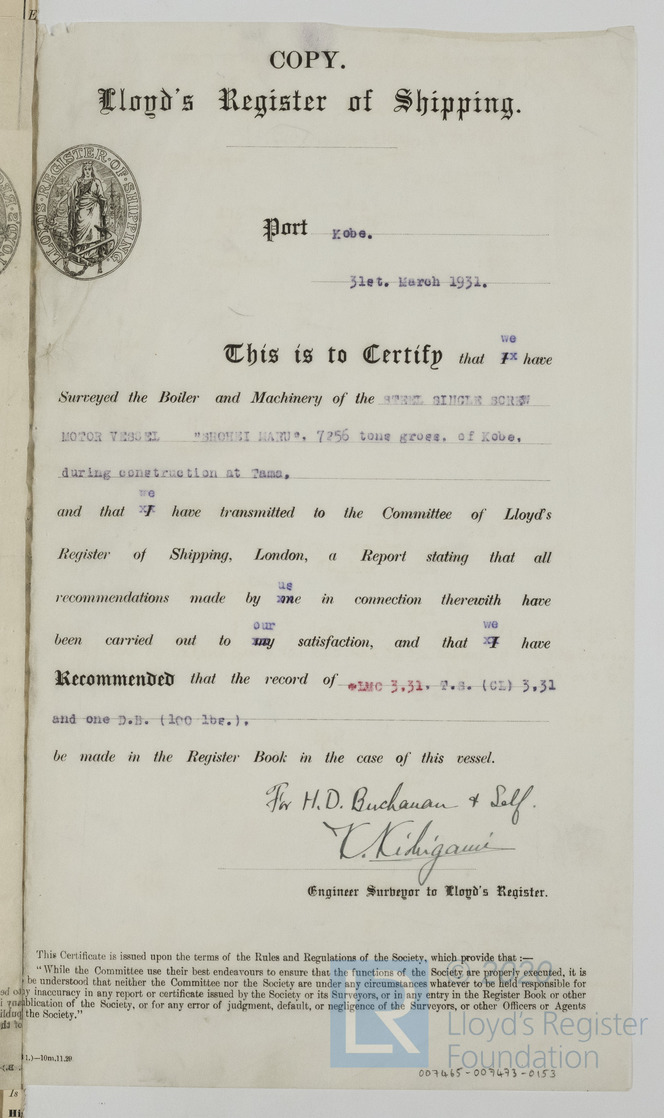 E
COPY.
Lloyd's Register of Shipping.
LLOYD'S·REGISTER·OF·SHIPPING
Port Kobe.
31st. March 1931.
we
This is to Certify that I have
Surveyed the Boiler and Machinery of the STEEL SINGLE SCREW
MOTOR VESSEL "SHOHEI MARU", 7256 tons gross. of Kobe,
during construction at Tama,
we
and that I have transmitted to the Committee of Lloyd's
Register of Shipping, London, a Report stating that all
us
recommendations made by me in connection therewith have
our we
been carried out to my satisfaction, and that I have
Recommended that the record of *LMC 3,31. T.S. (CL) 3,31
and one D.B. (100 lbs.).
be made in the Register Book in the case of this vessel.
For H.D. Buchanan & Self.
K. Kishigami
Engineer Surveyor to Lloyd's Register.
This Certificate is issued upon the terms of the Rules and Regulations of the Society, which provide that :—
"While the Committee use their best endeavours to ensure that the functions of the Society are properly executed, it is
be understood that neither the Committee nor the Society are under any circumstances whatever to be held responsible for
y inaccuracy in any report or certificate issued by the Society or its Surveyors, or in any entry in the Register Book or other
blication of the Society, or for any error of judgment, default, or negligence of the Surveyors, or other Officers or Agents
the Society."
1.)—10m,11.29
© 2020
LR
Lloyd's Register
Foundation
007465-007473-0153
Is
Hi